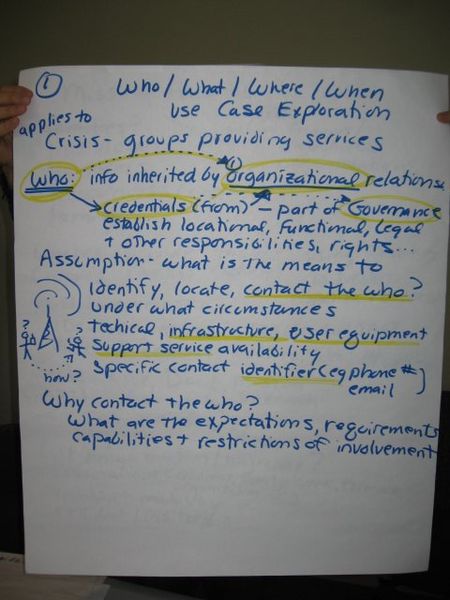 1
Who / What / Where / When
Use Case Exploration
applies to
Crisis - groups providing services
1
Who: info inherited by organizational relations
credentials (from) - part of Governance
establish locational, functional, legal
+ other responsibilities, rights...
Assumption - what is the means to
Identify, locate, contact the who?
under what circumstances
techical, infrastructure, user equipment
support service availability
Specific contact identifier (eg phone #
email)
? ?
how?
Why contact the who?
What are the expectations, requirements
capabilities + restrictions of involvement